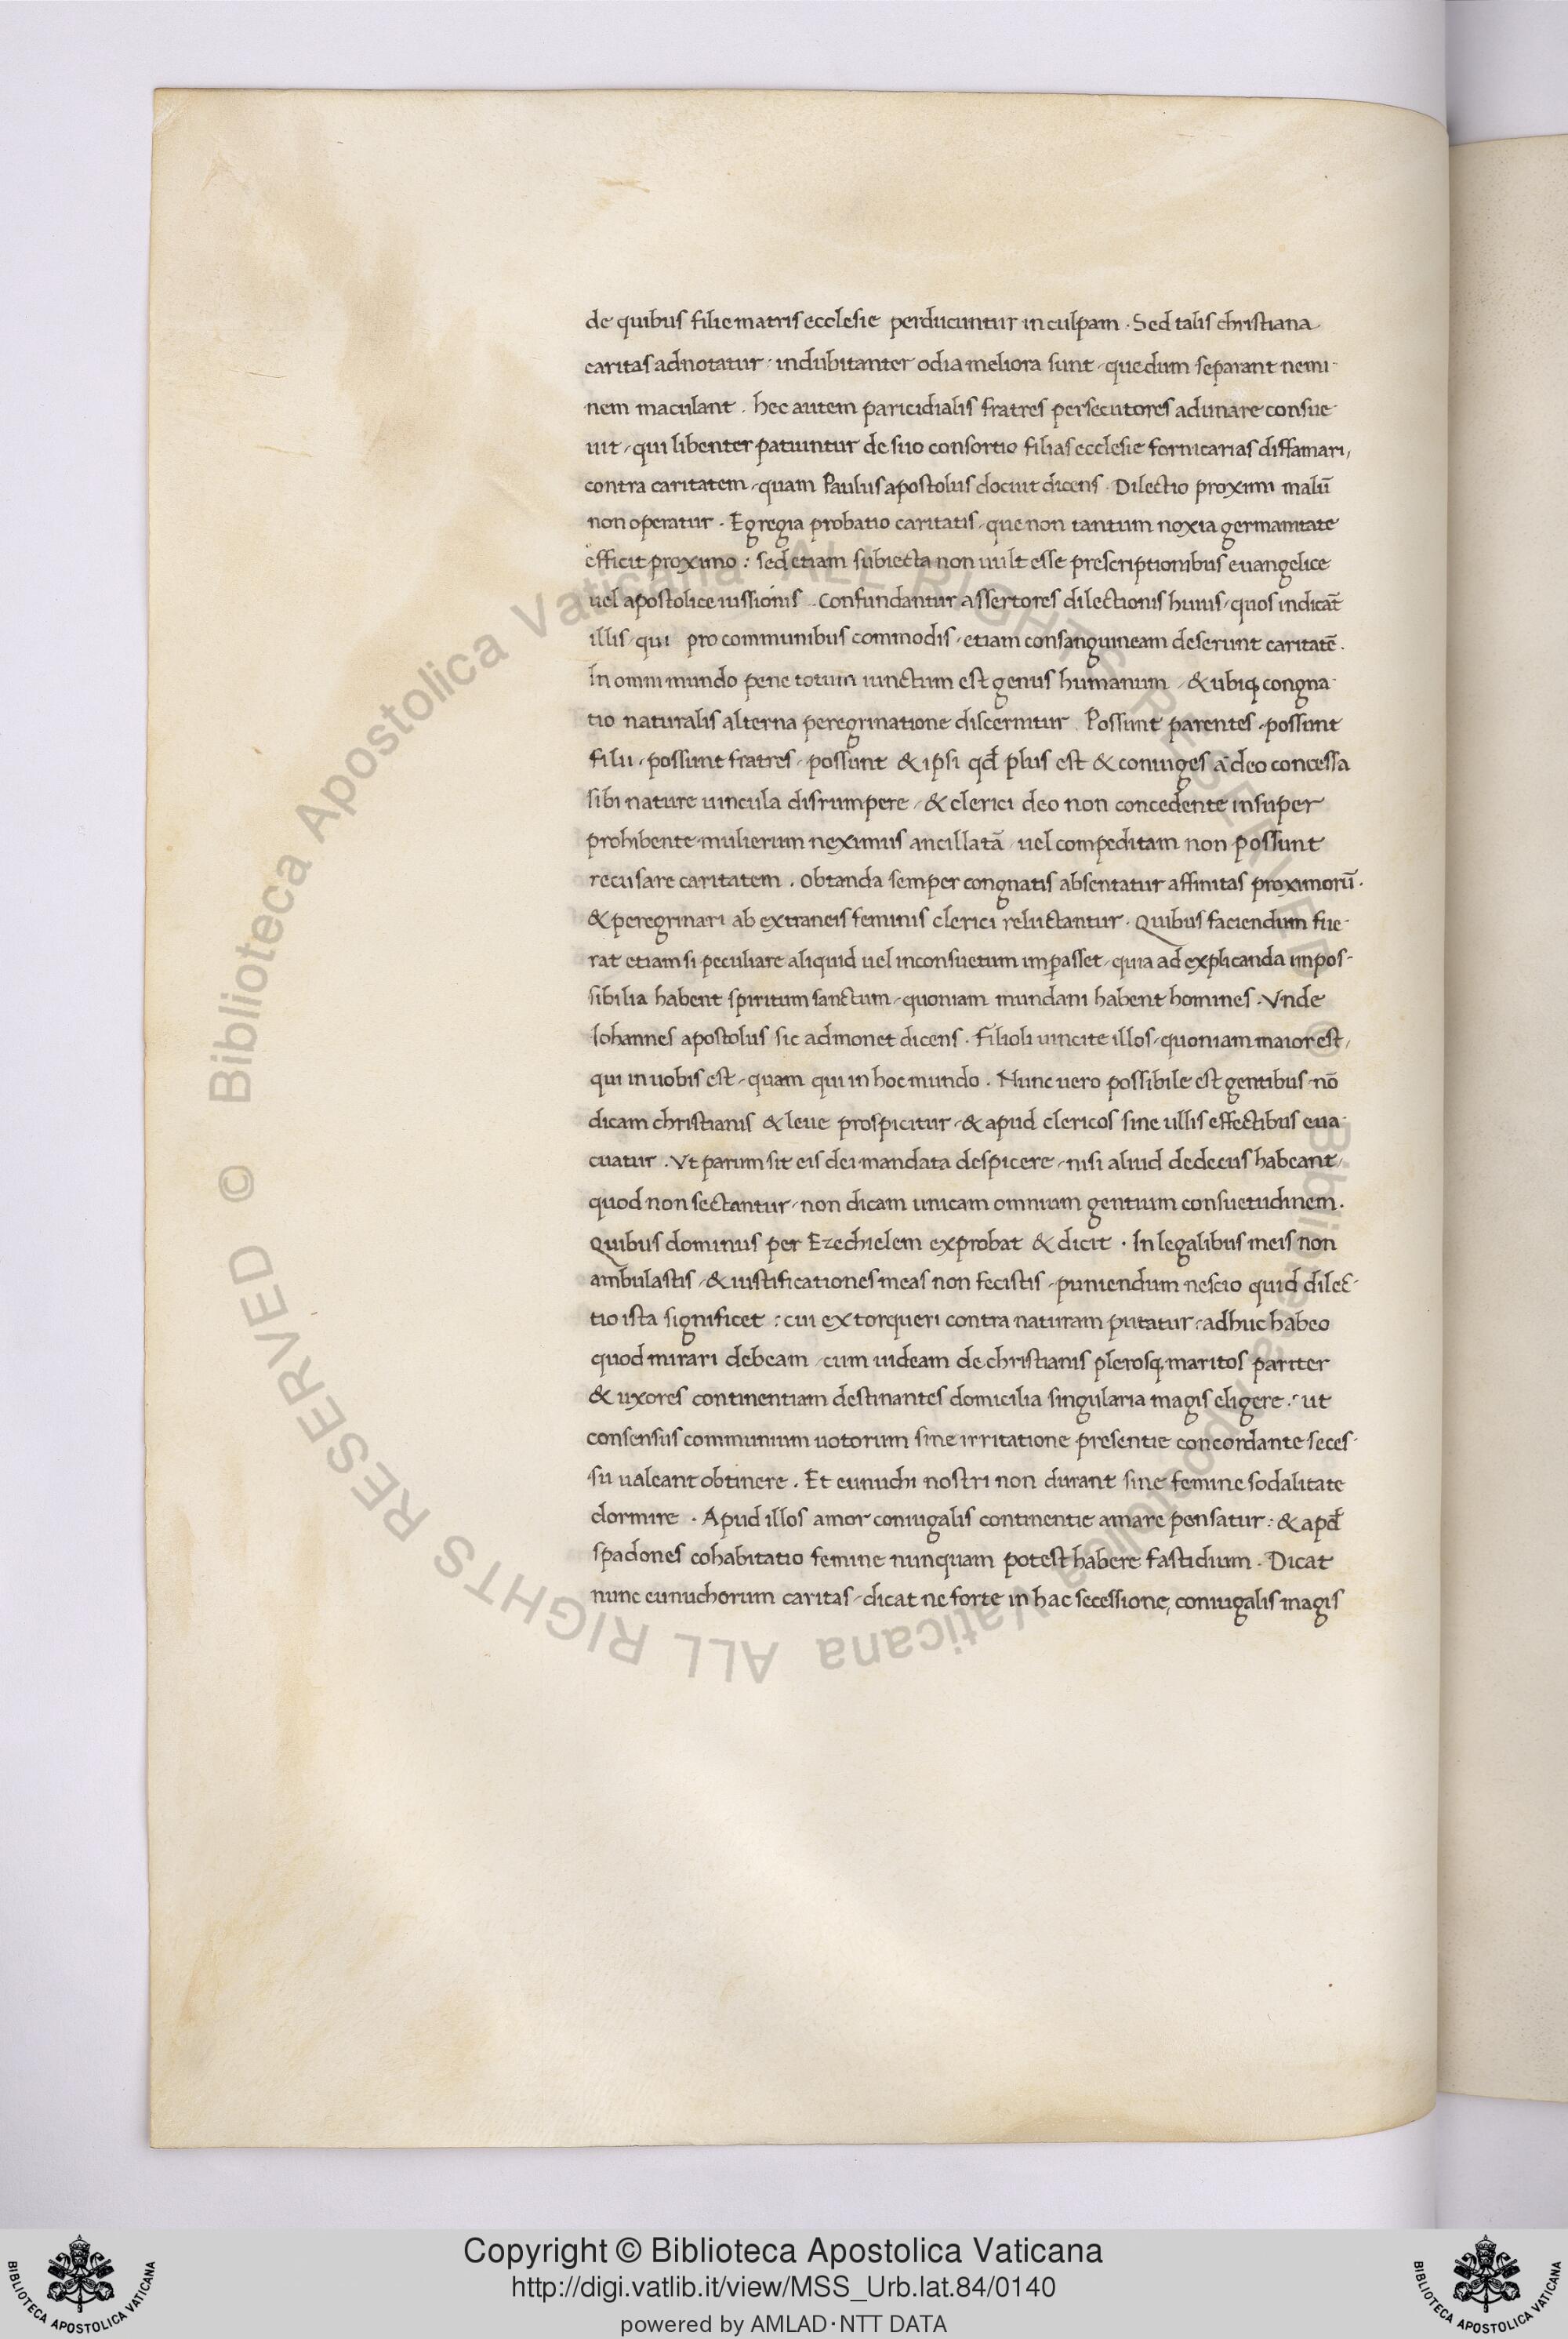 de quibus filie matris ecclesie perducuntur in culpam · Sed talis christiana
caritas adnotatur · indubitanter odia meliora sunt · que dum separant nemi-
nem maculant . hec autem paricidialis fratres persecutores adunare consue-
uit · qui libenter patiuntur de suo consortio filias ecclesie fornicarias diffamari,
contra caritatem · quam Paulus apostolus docuit dicens · Dilectio proximi malū
non operatur . Egregia probatio caritatis · que non tantum noxia germanitate
efficit proximo : sed etiam subiecta non uult esse prescriptionibus euangelice
uel apostolice iussionis . Confundantur assertores dilectionis huius · quos indicāt
illis · qui pro communibus commodis · etiam consanguineam deserunt caritatē .
In omni mundo pene totum iunctum est genus humanum · & ubiq; congna-
tio naturalis alterna peregrinatione discernitur . Possunt parentes · possunt
filii · possunt fratres · possunt & ipsi qđ plus est & coniuges a deo concessa
sibi nature uincula disrumpere · & clerici deo non concedente insuper
prohibente · mulierum neximus ancillatā uel compeditam non possunt
recusare caritatem . obtanda semper congnatis absentatur affinitas proximorū .
& peregrinari ab extraneis feminis clerici reluctantur · Quibus faciendum fue-
rat etiam si peculiare aliquid uel inconsuetum imperasset · quia ad explicanda impos-
sibilia habent spiritum sanctum · quoniam mundani habent homines . Vnde
Iohannes apostolus sic admonet dicens · Filioli uincite illos · quoniam maior est,
qui in uobis est · quam qui in hoc mundo . Nunc uero possibile est gentibus nō
dicam christianis & leue prospicitur · & apud clericos sine ullis effectibus eua-
cuatur . Vt parum sit eis dei mandata despicere · nisi aliud dedecus habeant,
quod non sectantur · non dicam unicam omnium gentium consuetudinem .
Quibus dominus per Ezechielem exprobat & dicit · In legalibus meis non
ambulastis · & iustificationes meas non fecistis · puniendum nescio quid dilec-
tio ista significet : cui extorqueri contra naturam putatur · adhuc habeo
quod mirari debeam · cum uideam de christianis plerosq; maritos pariter
& uxores continentiam destinantes domicilia singularia magis eligere : ut
consensus communium uotorum sine irritatione presentie concordante seces-
su ualeant obtinere . Et eunuchi nostri non durant sine femine sodalitate
dormire · Apud illos amor coniugalis continentie amare pensatur : & apđ
spadones cohabitatio femine nunquam potest habere fastidium . Dicat
nunc eunuchorum caritas · dicat ne forte in hac secessione, coniugalis magis
© Biblioteca Apostolica Vaticana ALL RIGHTS RESERVED © Biblioteca Apostolica Vaticana ALL RIGHTS RESERVED
Copyright © Biblioteca Apostolica Vaticana
http://digi.vatlib.it/view/MSS_Urb.lat.84/0140
powered by AMLAD·NTT DATA
BIBLIOTECA APOSTOLICA VATICANA
BIBLIOTECA APOSTOLICA VATICANA